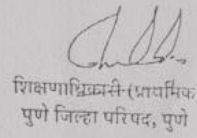 शिक्षणाधिकारी (प्राथमिक
पुणे जिल्हा परिषद, पुणे